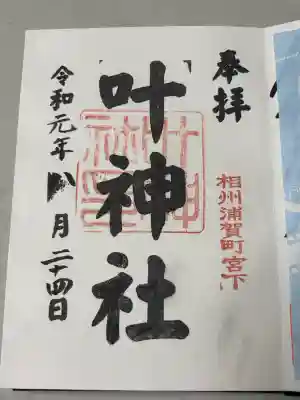 奉拝
相州浦賀町宮下
叶神社
令和元年八月二十四日